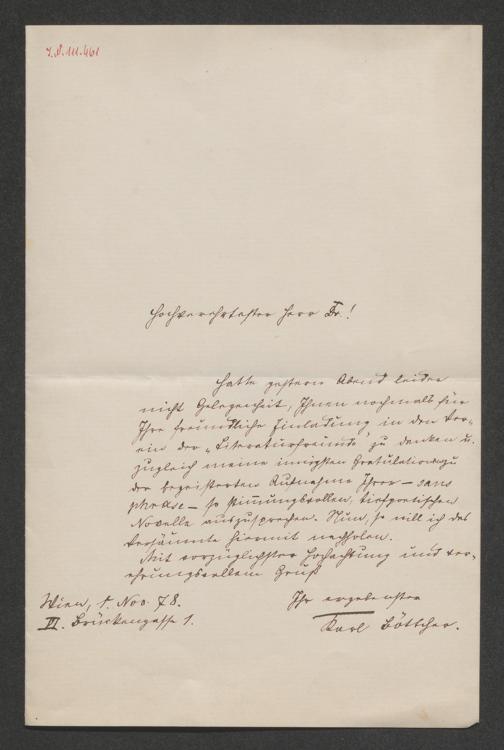 I.N. 111.461
Hochverehrtester Herr Dr.!
Hatte gestern Abend leider
nicht Gelegenheit, Ihnen nochmals für
Ihre freundliche Einladung in den Ver-
ein der „Literaturfreunde" zu danken u.
zugleich meine innigsten Gratulationen zu
der begeisterten Aufnahme Ihrer – sans
phrase – so stimmungsvollen, tiefpoetischen
Novelle auszusprechen. Nun, so will ich das
Versäumte hiermit nachholen.
Mit vorzüglichster Hochachtung und ver-
ehrungsvollem Gruß
Ihr ergebenster
Karl Böttcher.
Wien, 1. Nov. 78.
III. Brückengasse 1.